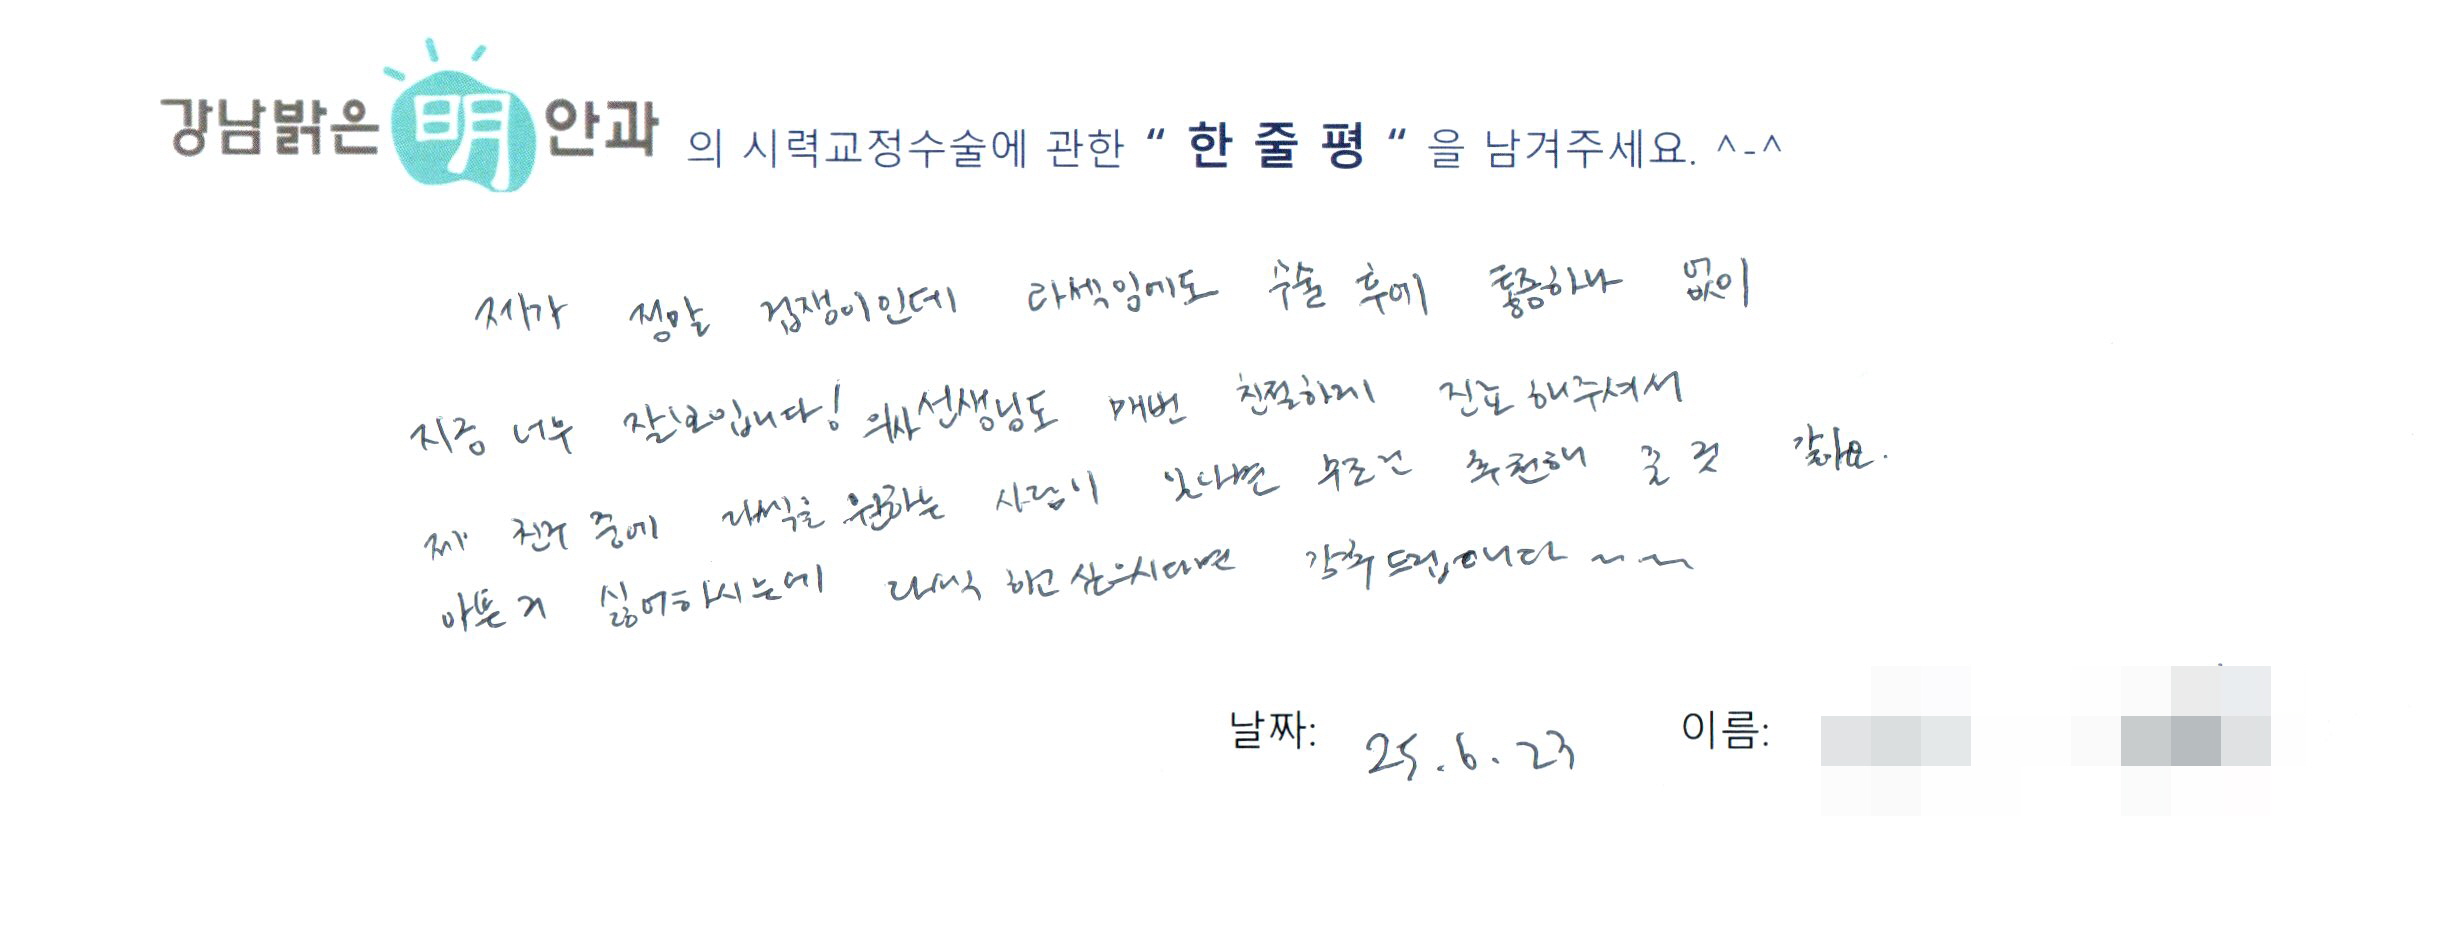 강남밝은 明 안과 의 시력교정수술에 관한 “ 한 줄 평 “ 을 남겨주세요. ^-^
제가 정말 겁쟁이인데 라섹임에도 수술 후에 통증하나 없이
지금 너무 잘보입니다! 의사선생님도 매번 친절하게 진료 해주셔서
제 친구 중에 라섹을 원하는 사람이 있다면 무조건 추천해 줄 것 같아요.
아픈거 싫어하시는데 라섹 하고싶으시다면 강추드립니다 ~~
날짜: 25.6.23 이름: